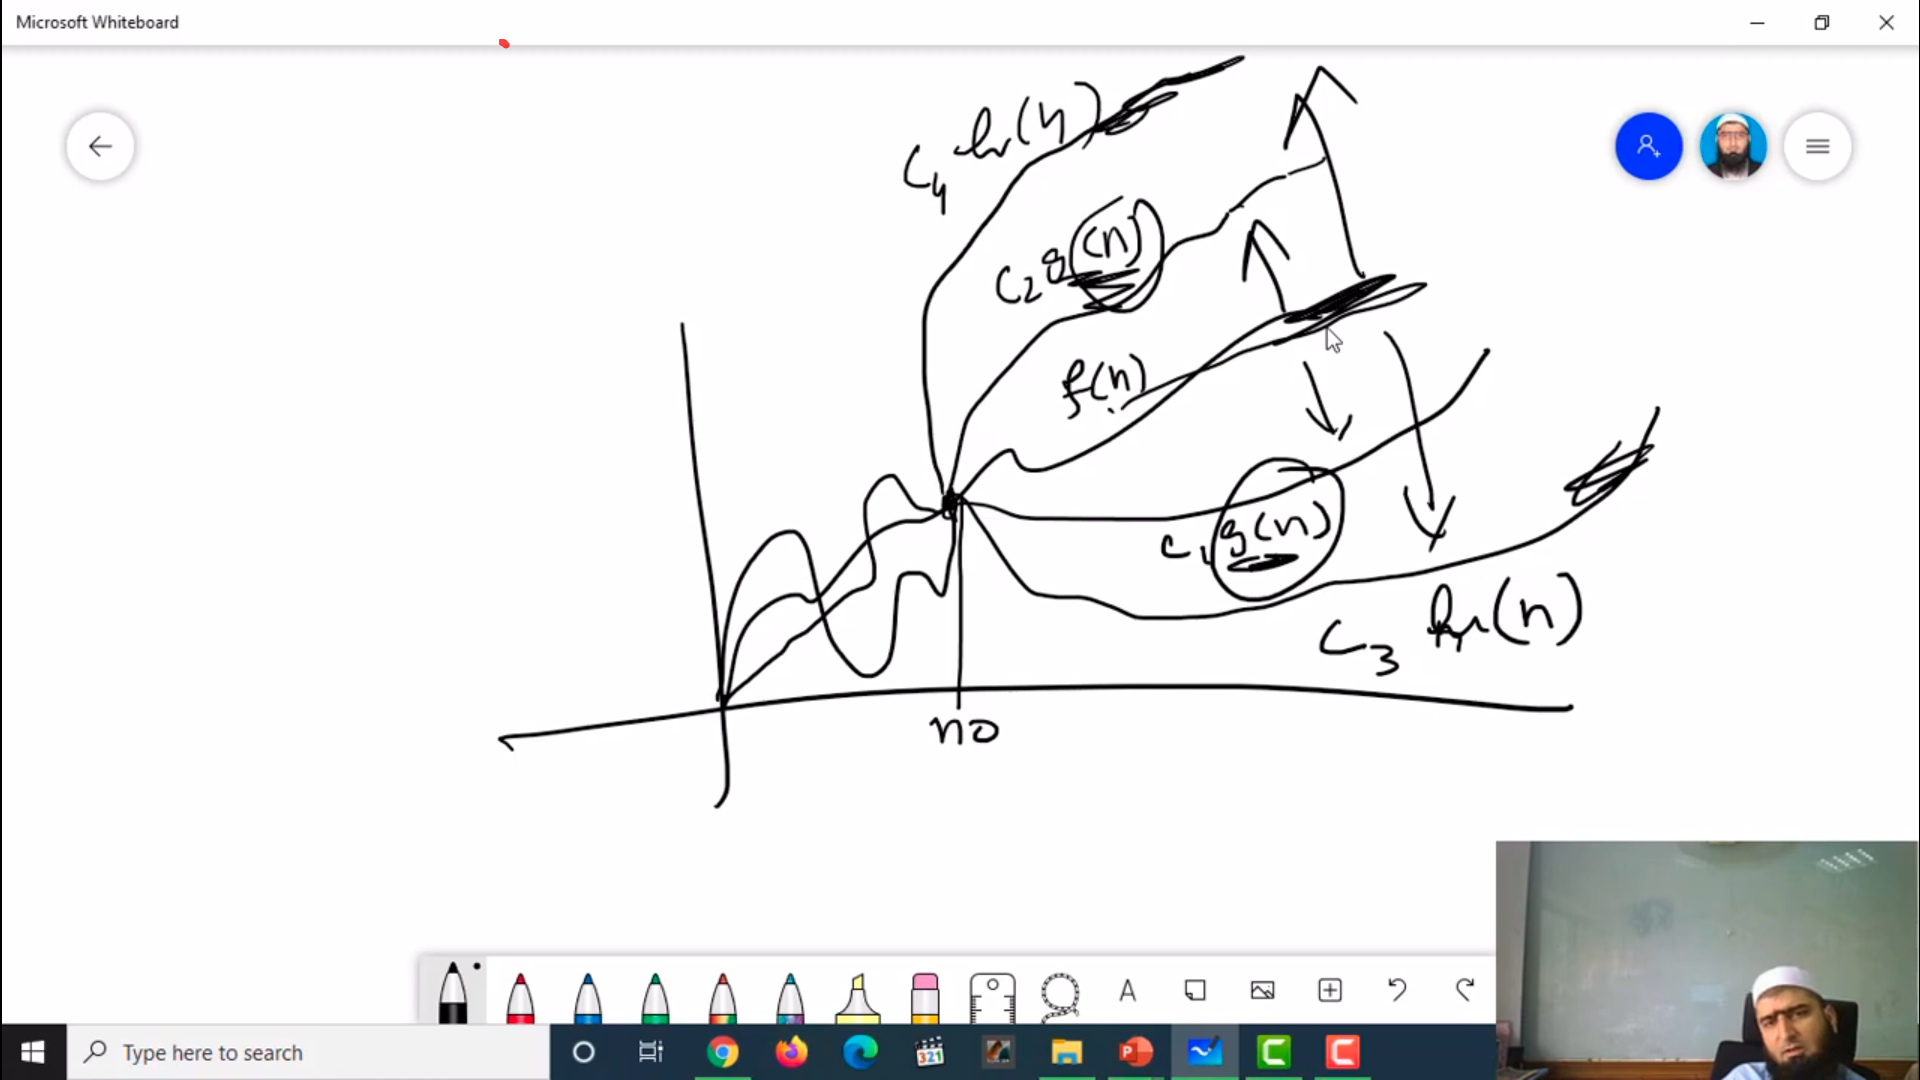 Microsoft Whiteboard
C4 h(n)
C2 g(n)
f(n)
C1 g(n)
C3 h(n)
no
A
Type here to search
321